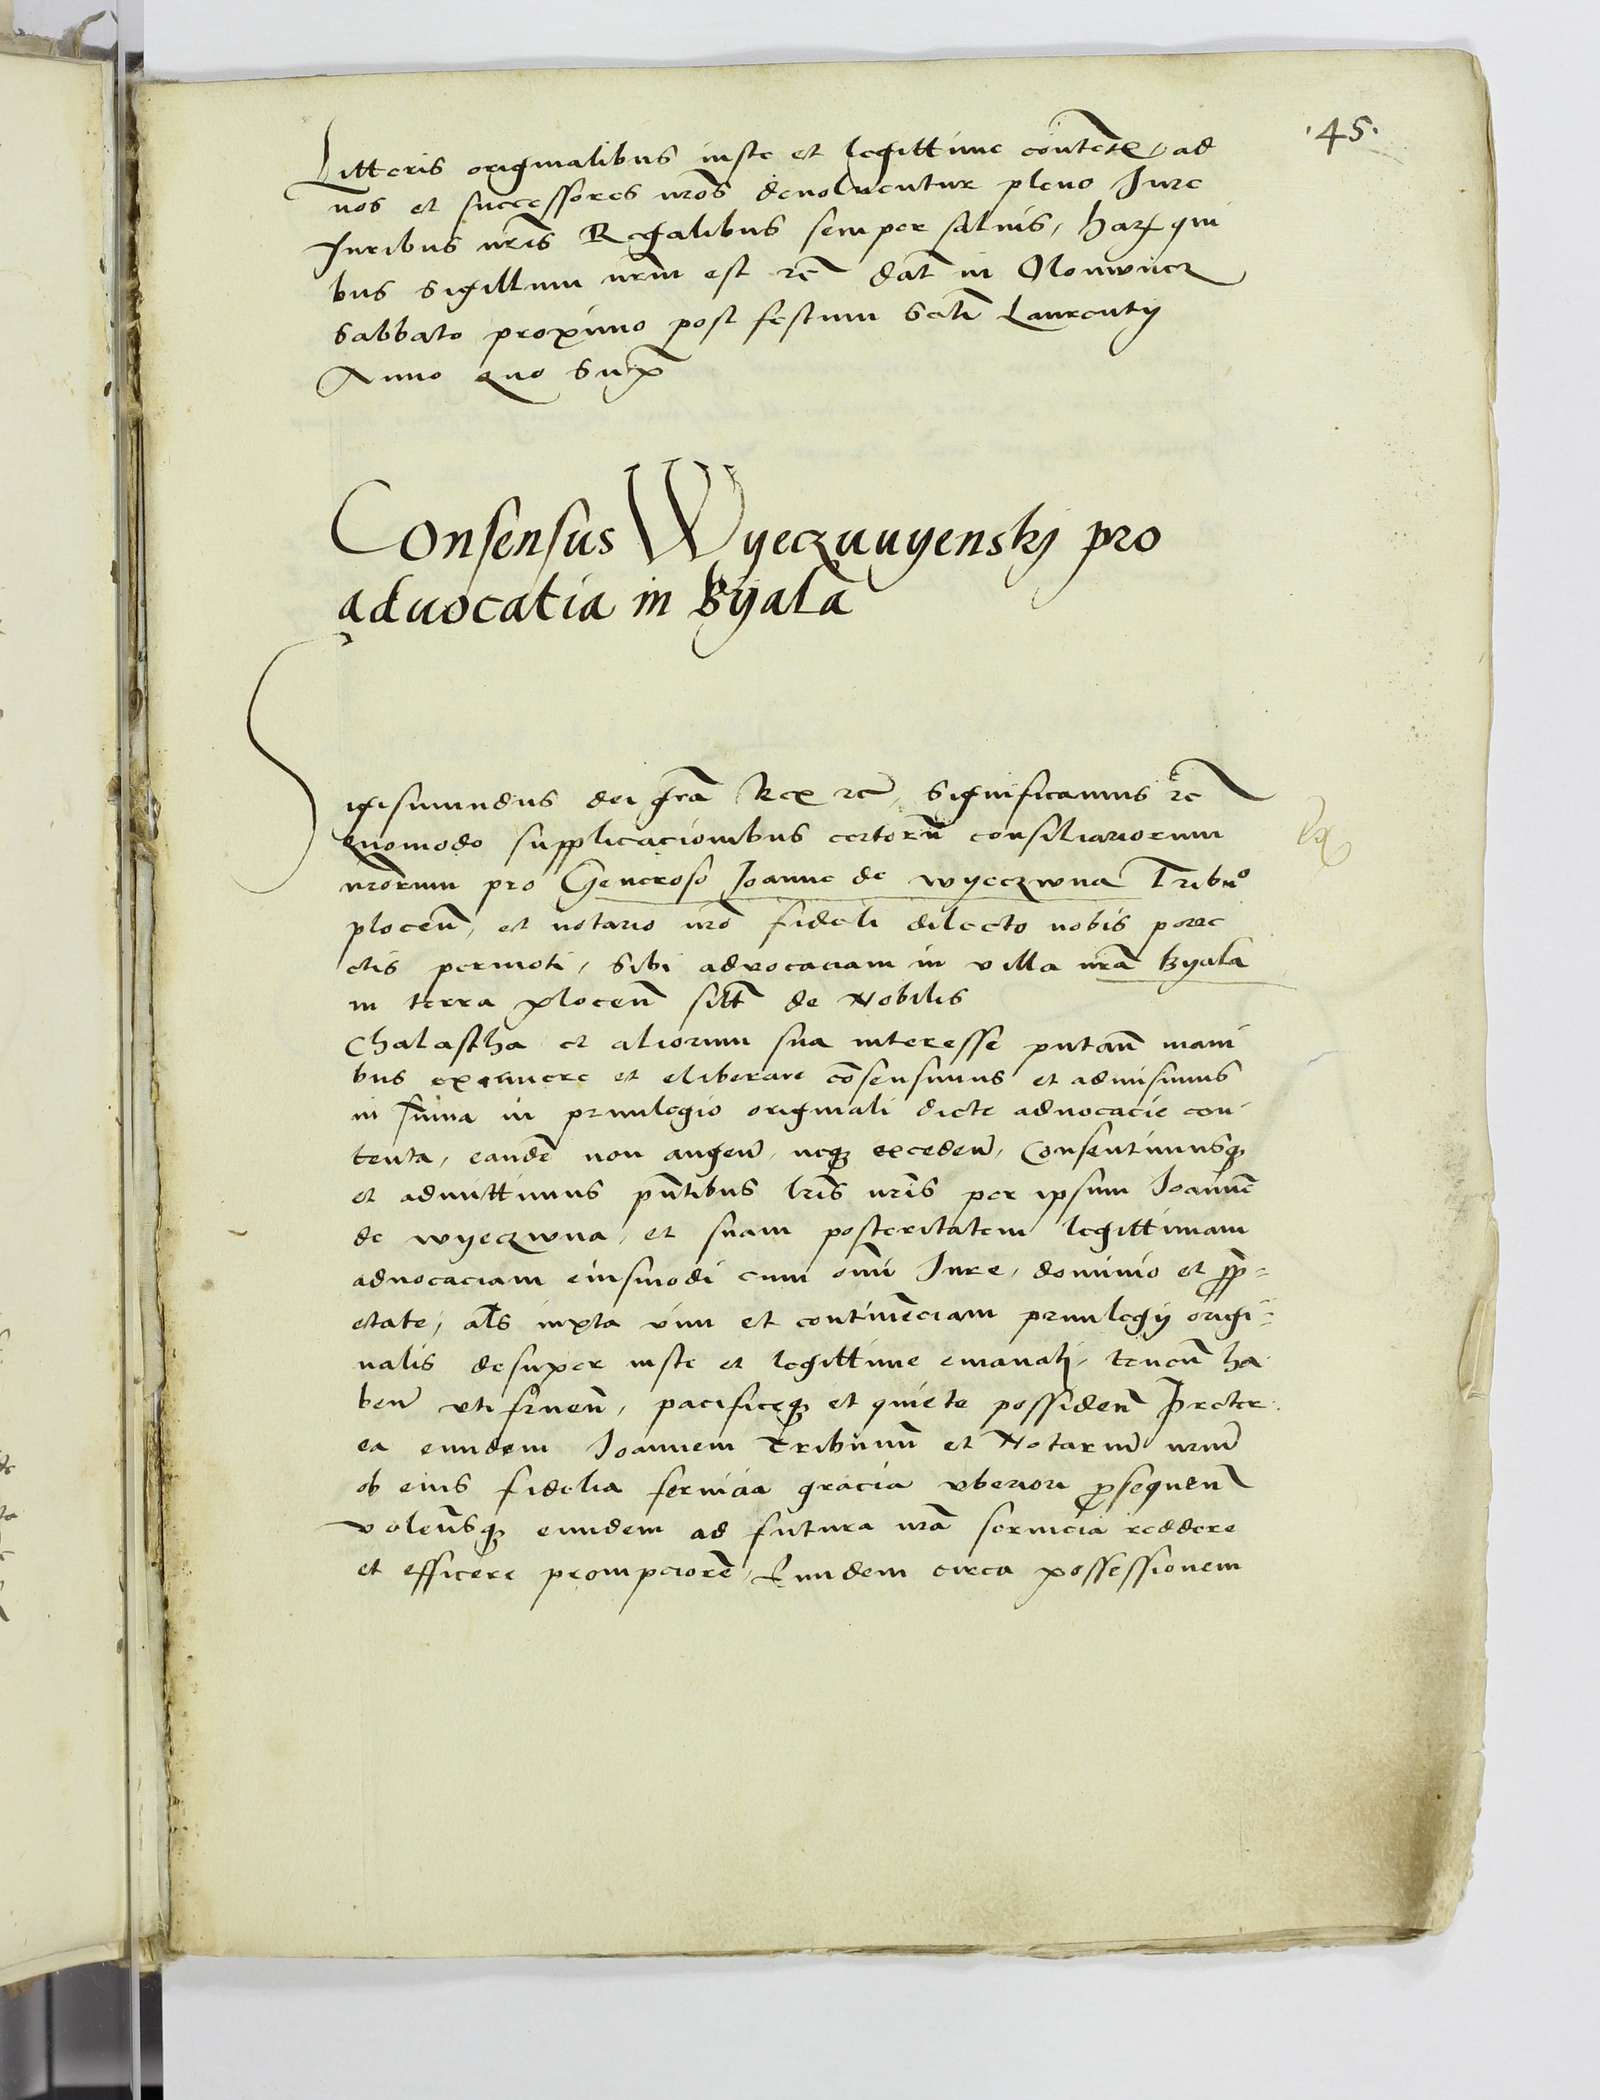 ·45·
Litteris originalibus iuste et legittime contente, ad
nos et successores nr̃os deuoluentur pleno Iure
Iuribus nr̃is Regalibus semper saluis, harꝝ qui
bus sigillum nr̃m est rc̃ dat̃ in
Sabbato proximo post festum Scti Laurentij
Anno quo supra
Consensus Wyeczuuyenskj pro
aduocatia in Byala
Sigismundus dei gr̃a Rex rc̃, Significamus rc̃
quomodo supplicacionibus certorũ consiliariorum
nr̃orum pro Generoso Joanne de wyeczwna Tribuº
plocen̄, et notario nr̃o fideli dilecto nobis porre
ctis permoti, Sibi aduocaciam in villa nr̃a Byala
in terra plocen̄ sitt̃ de Nobilis
Chalastha et aliorum sua interesse putan̄ mani
bus eximere et eliberare cõsensimus et admisimus
in sum̃a in priuilegio originali dicte aduocacie con
tenta, eandẽ non augen̄, neqꝫ exceden̄, Consentimusqꝫ
et admittimus pñtibus lr̃is nr̃is per ipsum Joannẽ
de wyeczwna, et suam posteritatem legittimam
aduocaciam eiusmodi cum om̃i Iure, dominio et ꝓpri
etate, als̃ iuxta vim et continẽciam priuilegij origi-
nalis desuper iuste et legittime emanatj, tenen̄ ha
ben̄ vtifruen̄, pacificeqꝫ et quiete possiden̄ Preter
ea eundem Joannem Tribunũ et Notariũ nr̃m
ob eius fidelia seruicia gracia vberiori ꝓsequen̄
volen̄sqꝫ eundem ad futura nr̃a seruicia reddere
et efficere prompciorẽ, Eundem circa possessionem